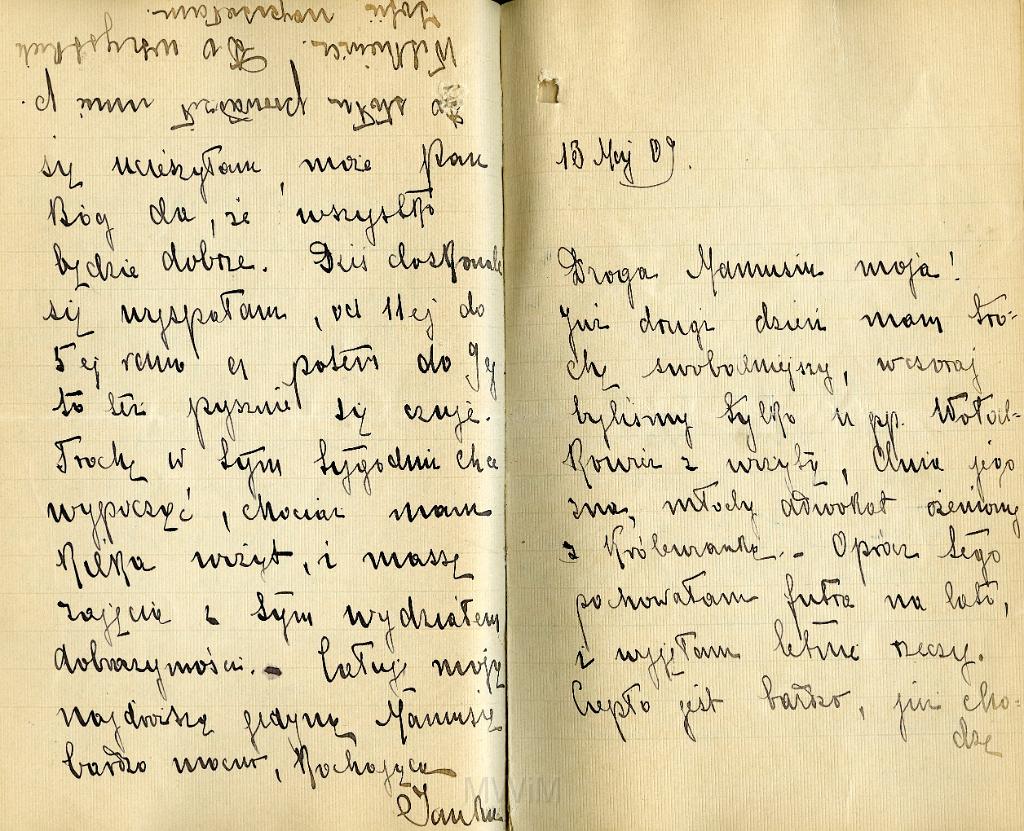 13 Maj 09.
Droga Mamusiu moja!
Już drugi dzień mam tro-
chę swobodniejszy, wczoraj
byliśmy tylko u pp. Wołod-
kowicz z wizytą, jego
zna, młody adwokat ożeniony
z . - Oprócz tego
pochowałam futra na lato,
i wyjęłam letnie rzeczy.
Ciepło jest bardzo, już cho-
dzę
się ucieszyłam, może Pan
Bóg da, że wszystko
będzie dobrze. Dziś doskonale
się wyspałam, od 11ej do
5ej rano a potem do 9ej
to też pysznie się czuję.
Trochę w tym tygodniu chcę
wypocząć, chociaż mam
kilka wizyt, i masę
zajęcia z tym wydziałem
dobroczynności. - Całuję moją
najdroższą jedyną Mamusię
bardzo mocno, Kochająca
Janka
do stołu prowadził mnie p.
. Do wszystkich
Zofii napisałam.
MWiM